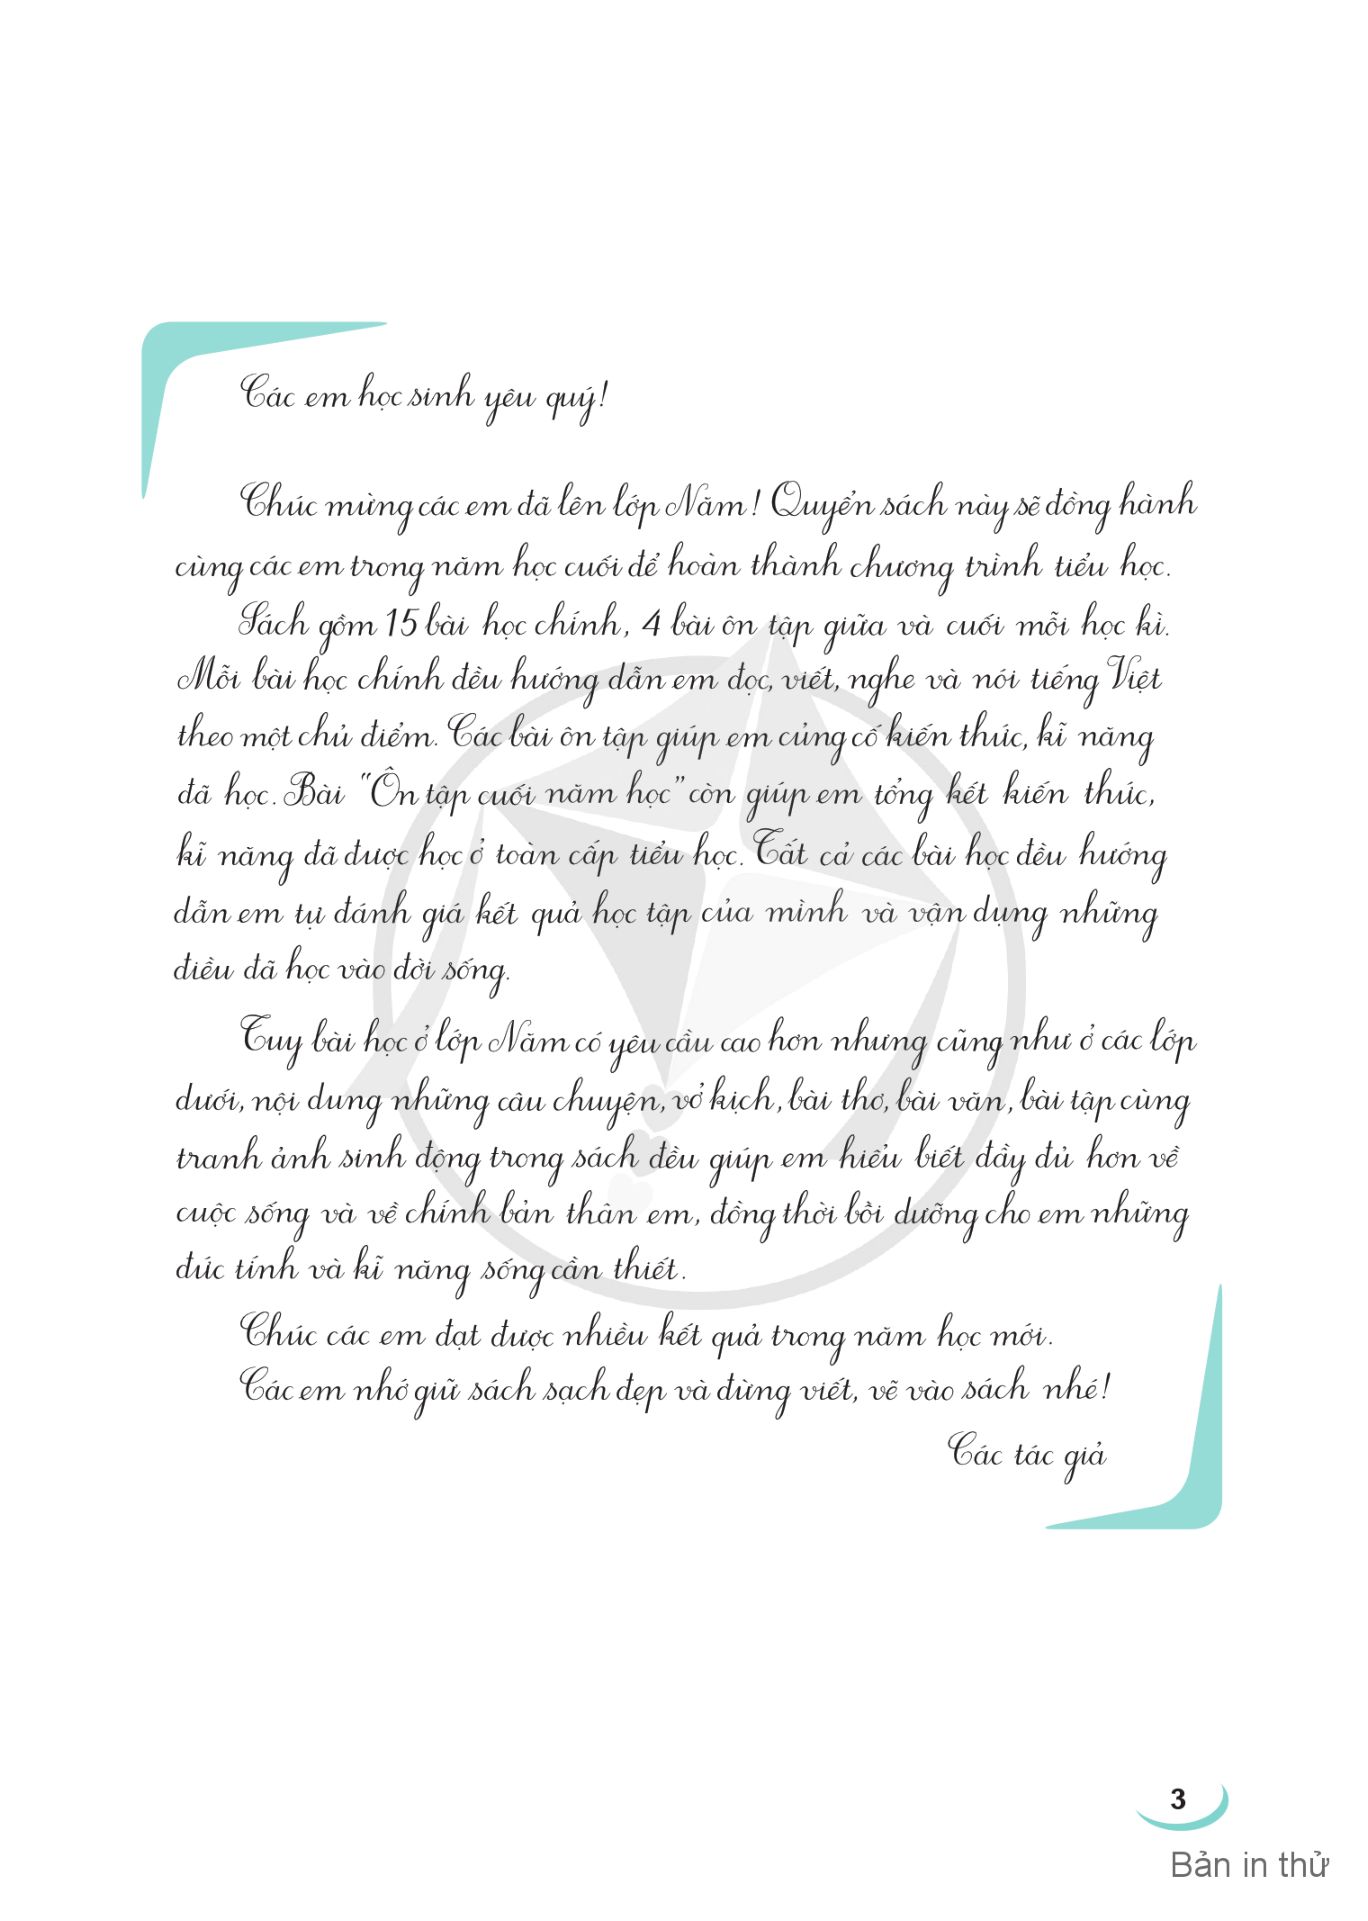 Các em học sinh yêu quý!
Chúc mừng các em đã lên lớp Năm! Quyển sách này sẽ đồng hành
cùng các em trong năm học cuối để hoàn thành chương trình tiểu học.
Sách gồm 15 bài học chính, 4 bài ôn tập giữa và cuối mỗi học kì.
Mỗi bài học chính đều hướng dẫn em đọc, viết, nghe và nói tiếng Việt
theo một chủ điểm. Các bài ôn tập giúp em củng cố kiến thức, kĩ năng
đã học. Bài "Ôn tập cuối năm học" còn giúp em tổng kết kiến thức,
kĩ năng đã được học ở toàn cấp tiểu học. Tất cả các bài học đều hướng
dẫn em tự đánh giá kết quả học tập của mình và vận dụng những
điều đã học vào đời sống.
Tuy bài học ở lớp Năm có yêu cầu cao hơn nhưng cũng như ở các lớp
dưới, nội dung những câu chuyện, vở kịch, bài thơ, bài văn, bài tập cùng
tranh ảnh sinh động trong sách đều giúp em hiểu biết đầy đủ hơn về
cuộc sống và về chính bản thân em, đồng thời bồi dưỡng cho em những
đức tính và kĩ năng sống cần thiết.
Chúc các em đạt được nhiều kết quả trong năm học mới.
Các em nhớ giữ sách sạch đẹp và đừng viết, vẽ vào sách nhé!
Các tác giả
3
Bản in thử